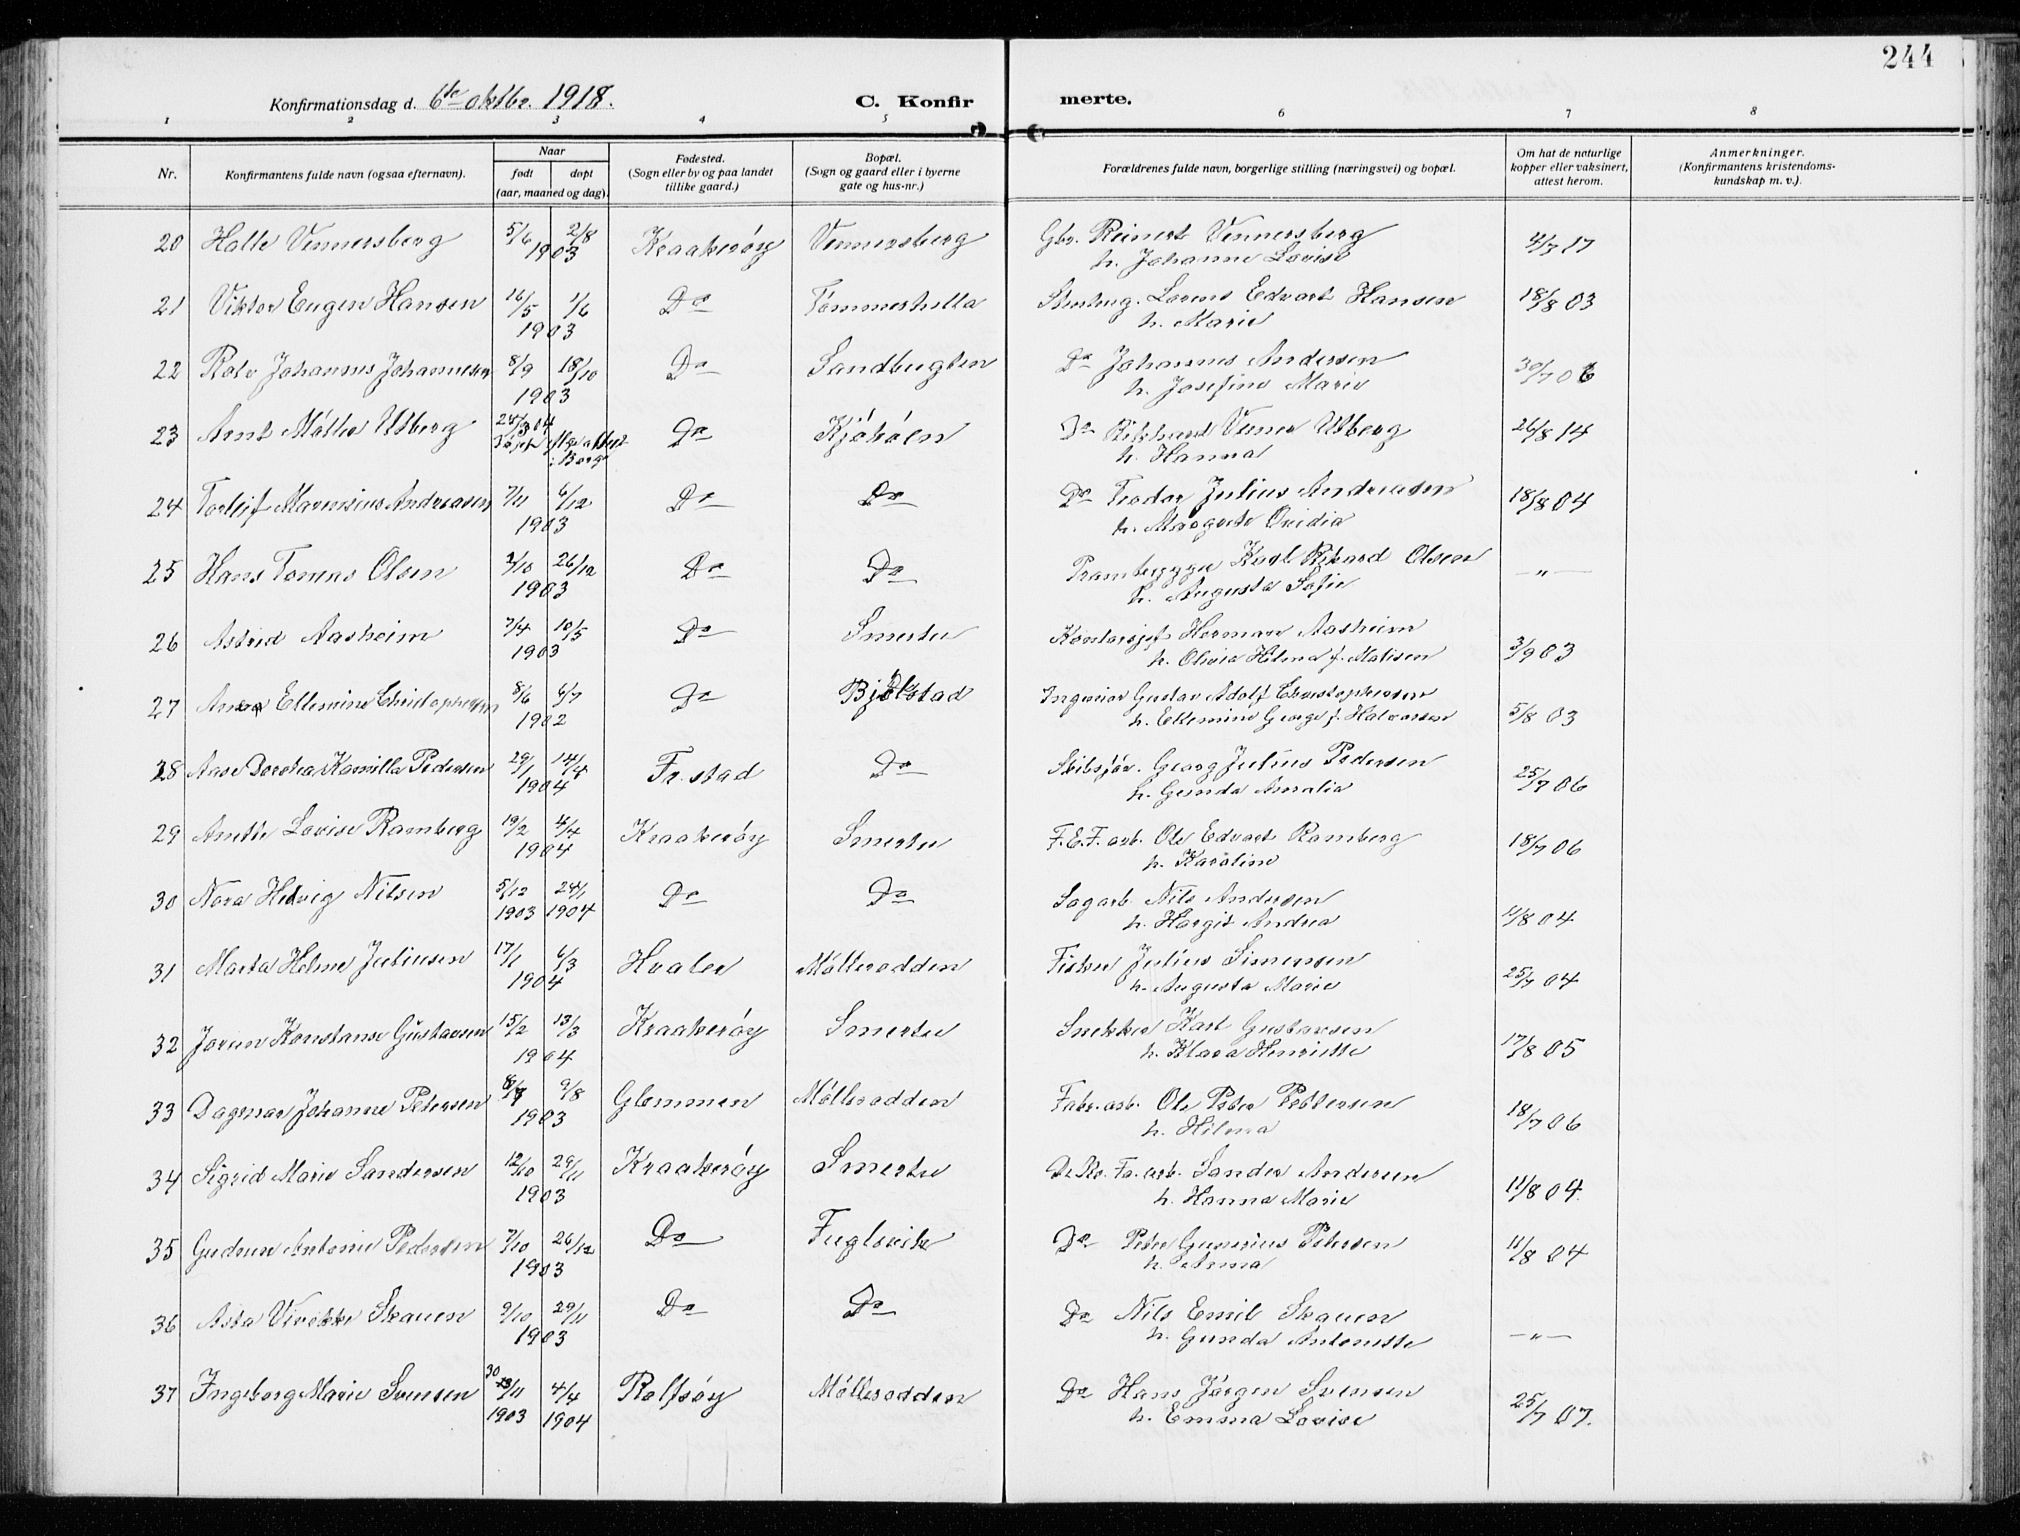 244
Konfirmationsdag d. 6te oktbr. 1918.
C. Konfir merte.
1 2 3 4 5 6 7 8
Nr.
Konfirmantens fulde navn (ogsaa efternavn).
Naar
født døpt
(aar, maaned og dag).
Fødested.
(Sogn eller by og paa landet
tillike gaard.)
Bopæl.
(Sogn og gaard eller i byerne
gate og hus-nr.)
Forældrenes fulde navn, borgerlige stilling (næringsvei) og bopæl.
Om hat de naturlige
kopper eller vaksinert,
attest herom.
Anmerkninger.
(Konfirmantens kristendoms-
kundskap m. v.).
20 Halle Vennersberg 5/6 2/8 Kraakerøy Vennersberg Gbr. Reinert Vennersberg 4/7 17
1903 h. Johanne Lovise
21 Viktor Eugen Hansen 16/5 1/6 Do Tømmerhella Stenhug. Lorens Edvart Hansen 18/8 03
1903 h. Marie
22 Rolv Johannes Johannesen 8/9 18/10 Do Sandbugten Do Johannes Andersen 30/7 06
1903 h. Josefine Marie
23 Arnt Møller Utberg 04 Do Kjøholn Do Rikhard Verner Utberg 26/8 14
i Borge h. Hanna
24 Torleif Marensius Andreasen 7/11 6/12 Do Do Do Teodor Julius Andreasen 18/8 04
1903 h. Margrete Ovidia
25 Hans Tomas Olsen 2/10 26/12 Do Do Prambygger Karl Rikard Olsen —"—
1903 h. Augusta Sofie
26 Astrid Aasheim 7/4 10/5 Do Smertu Kontorsjef Herman Aasheim 3/9 03
1903 h. Olivia Hilma f. Matisen
27 Anna Ellemine Christophersen 8/6 6/7 Do Bjølstad Ingeniør Gustav Adolf Christophersen 5/8 03
1902 h. Ellemine George f. Halvorsen
28 Aase Dorthea Kamilla Pedersen 29/1 14/4 Fr.stad Do Skibsfør. Georg Julius Pedersen 25/7 06
1904 h. Gunda Amalia
29 Anette Lovise Ramberg 19/2 4/4 Kraakerøy Smertu F.E.F. arb. Ole Edvart Ramberg 18/7 06
1904 h. Karoline
30 Nora Hedvig Nilsen 5/12 24/1 Do Do Sagarb. Nils Andersen 11/8 04
1903 1904 h. Hargit Andrea
31 Marta Helene Juliusen 17/1 6/3 Hvaler Møllerodden Fisker Julius Simensen 25/7 04
1904 h. Augusta Marie
32 Jorun Konstanse Gustavsen 15/2 13/3 Kraakerøy Smertu Snekker Karl Gustavsen 17/8 05
1904 h. Klara Henriette
33 Dagmar Johanne Petersen 8/7 9/8 Glemmen Møllerodden Fabr.arb. Ole Peter Pettersen 18/7 06
1903 h. Hilma
34 Sigrid Marie Sandersen 12/10 29/11 Kraakerøy Smertu Fa. arb. Sander Andersen 11/8 04
1903 h. Hanna Marie
35 Gudrun Antonie Pedersen 7/10 26/12 Do Fuglevik Do Peter Gunerius Petersen 11/8 04
1903 h. Anna
36 Asta Vivikke Skauen 9/10 29/11 Do Do Do Nils Emil Skauen —"—
1903 h. Gunda Antonette
37 Ingeborg Marie Svensen 30/11 4/4 Rolfsøy Møllerodden Do Hans Jørgen Svensen 25/7 07.
1903 1904 h. Emma Lovise